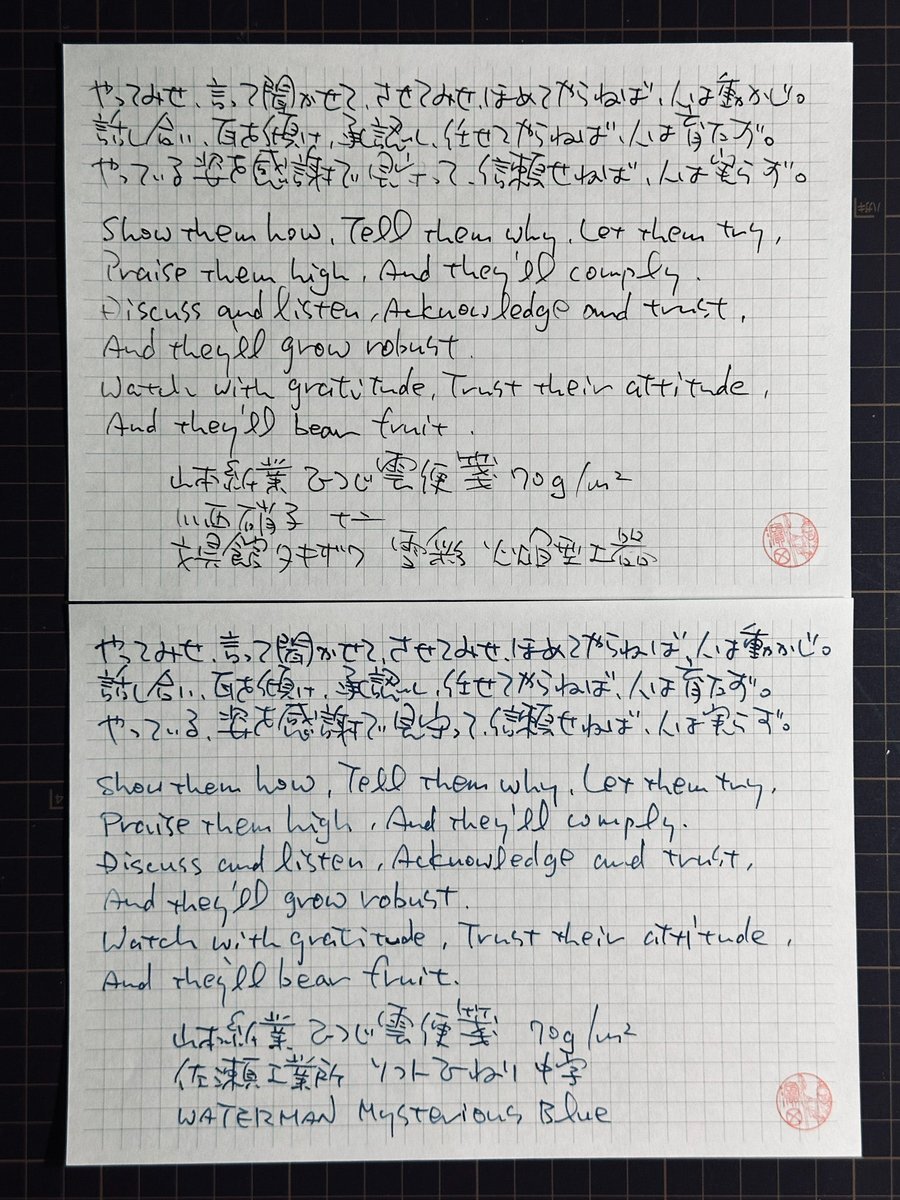 やってみせ、言って聞かせて、させてみせ、ほめてやらねば、人は動かじ。
話し合い、耳を傾け、承認し、任せてやらねば、人は育たず。
やっている、姿を感謝で見守って、信頼せねば、人は実らず。
Show them how, Tell them why, Let them try,
Praise them high, And they'll comply.
Discuss and listen, Acknowledge and trust,
And they'll grow robust.
Watch with gratitude, Trust their attitude,
And they'll bear fruit.
山本紙業 ひつじ雲便箋 70g/m²
川西硝子 十二
文具館タキザワ 雲彩 工房
やってみせ、言って聞かせて、させてみせ、ほめてやらねば、人は動かじ。
話し合い、耳を傾け、承認し、任せてやらねば、人は育たず。
やっている、姿を感謝で見守って、信頼せねば、人は実らず。
Show them how, Tell them why, Let them try,
Praise them high, And they'll comply.
Discuss and listen, Acknowledge and trust,
And they'll grow robust.
Watch with gratitude, Trust their attitude,
And they'll bear fruit.
山本紙業 ひつじ雲便箋 70g/m²
佐瀬工業所 ソフトひねり 中字
WATERMAN Mysterious Blue